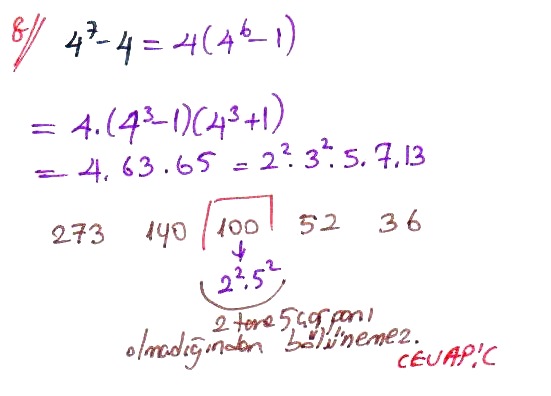 8// 4⁷-4 = 4(4⁶-1)
= 4.(4³-1)(4³+1)
= 4.63.65 = 2².3².5.7.13
273 140 100 52 36
↓
2².5²
2 tane 5 çarpanı
olmadığından bölünemez.
CEVAP:C